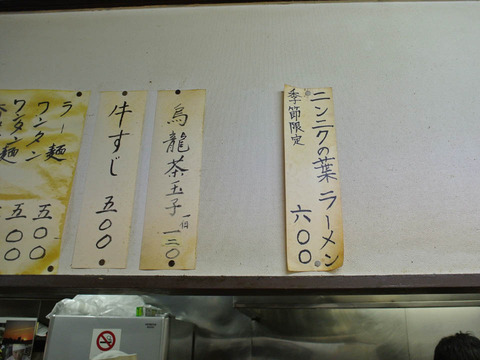 ニンニクの葉ラーメン 六〇〇
季節限定
烏龍茶玉子 一個 一三〇
牛すじ 五〇〇
ラー麺
ワンタン 五〇〇
ワンタン麺 五〇〇